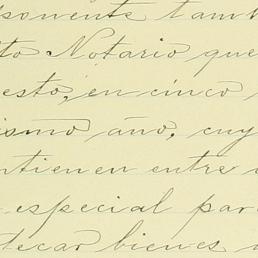 ponente tamb
to Notario que
esto, en cinco
ismo año, cuy
ntienen entre
especial par
tecar bienes